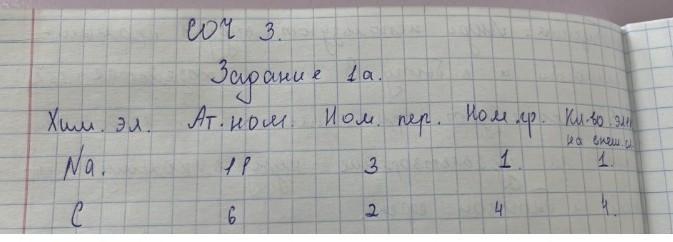 СОЧ 3.
Задание 1а.
Хим. эл. Ат. ном. Ном. пер. Ном. гр. Кл-во элек
на внеш. сл.
Na. 11 3 1. 1.
C 6 2 4 4.